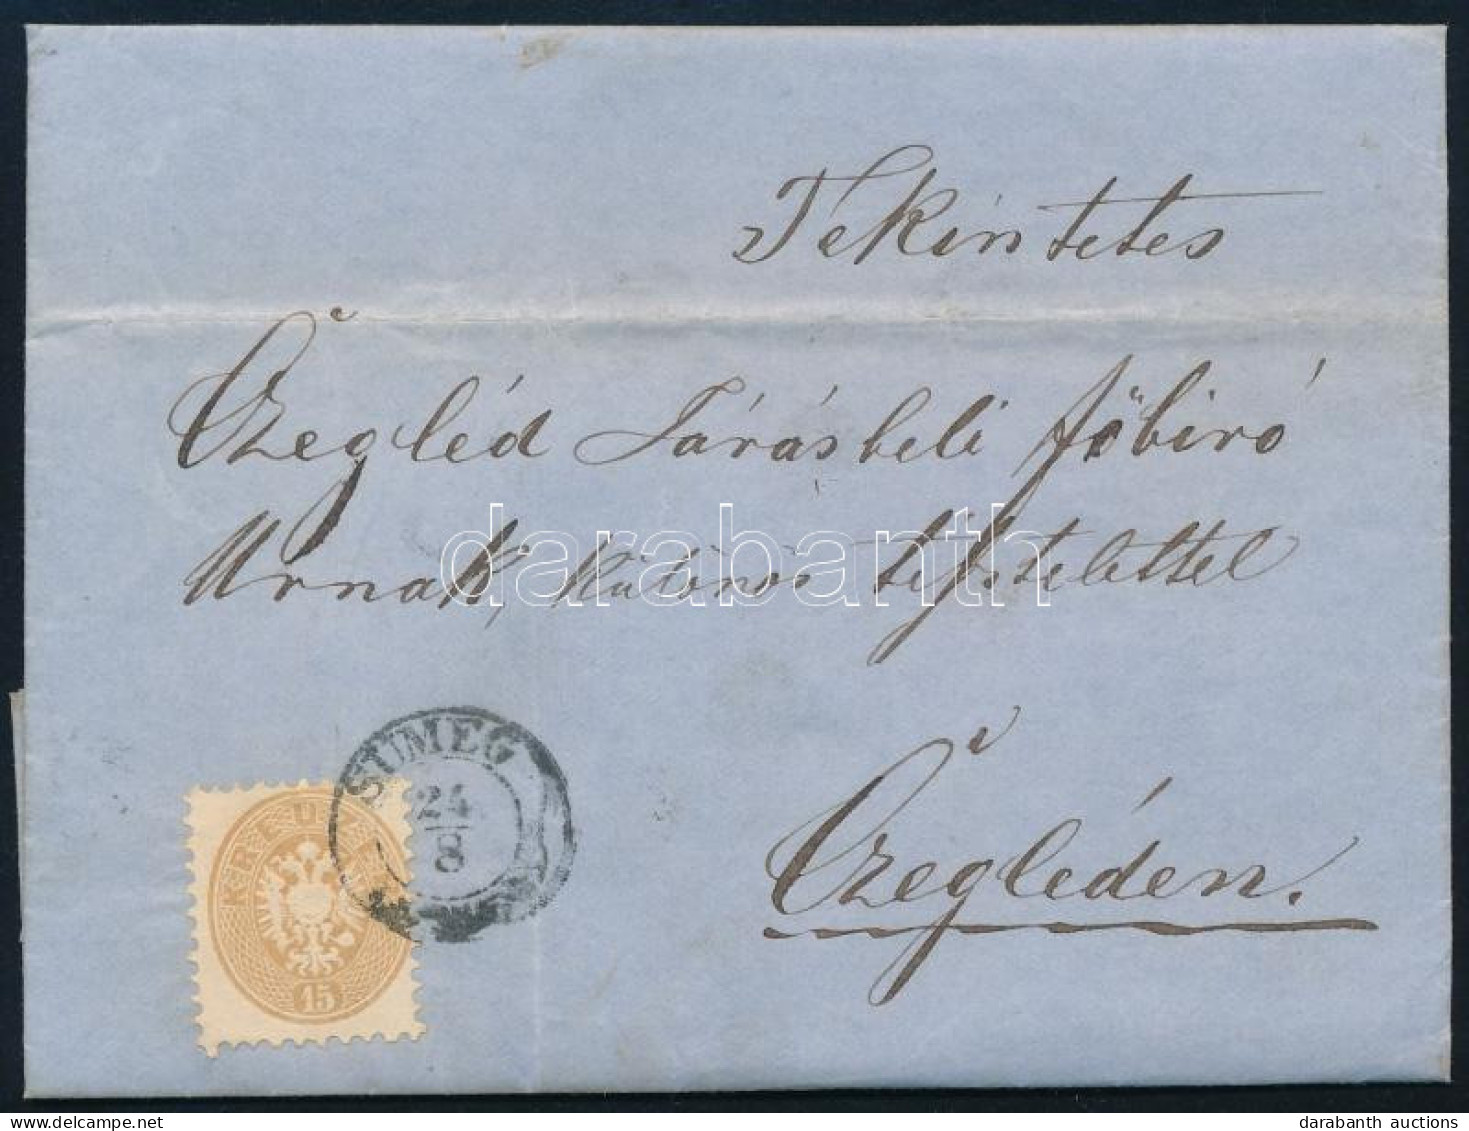 Tekintetes
Czegléd Járásbeli főbiró
Urnak, különös tisztelettel
Czegléden.
SÜMEG
24
8
KREUZER
15
darabanth
darabanth auctions